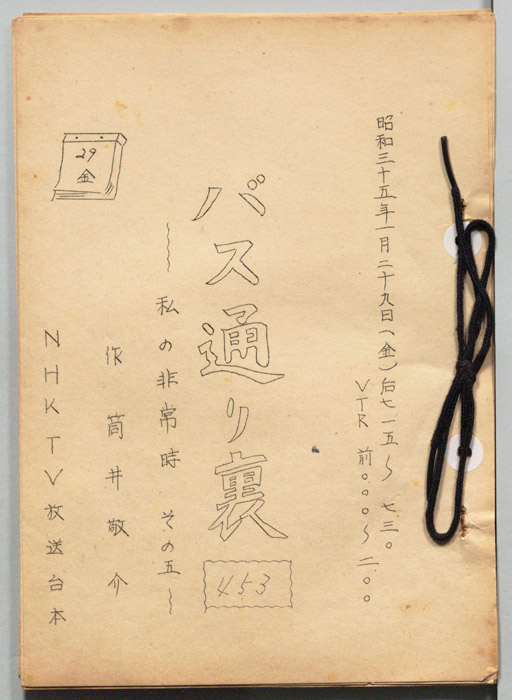 昭和三十五年一月二十九日(金)后七一五〜七三〇
VTR 前〇〇〇〜二〇〇
バス通り裏
453
〜私の非常時 その五〜
作 筒井敬介
29
金
NHKTV放送台本